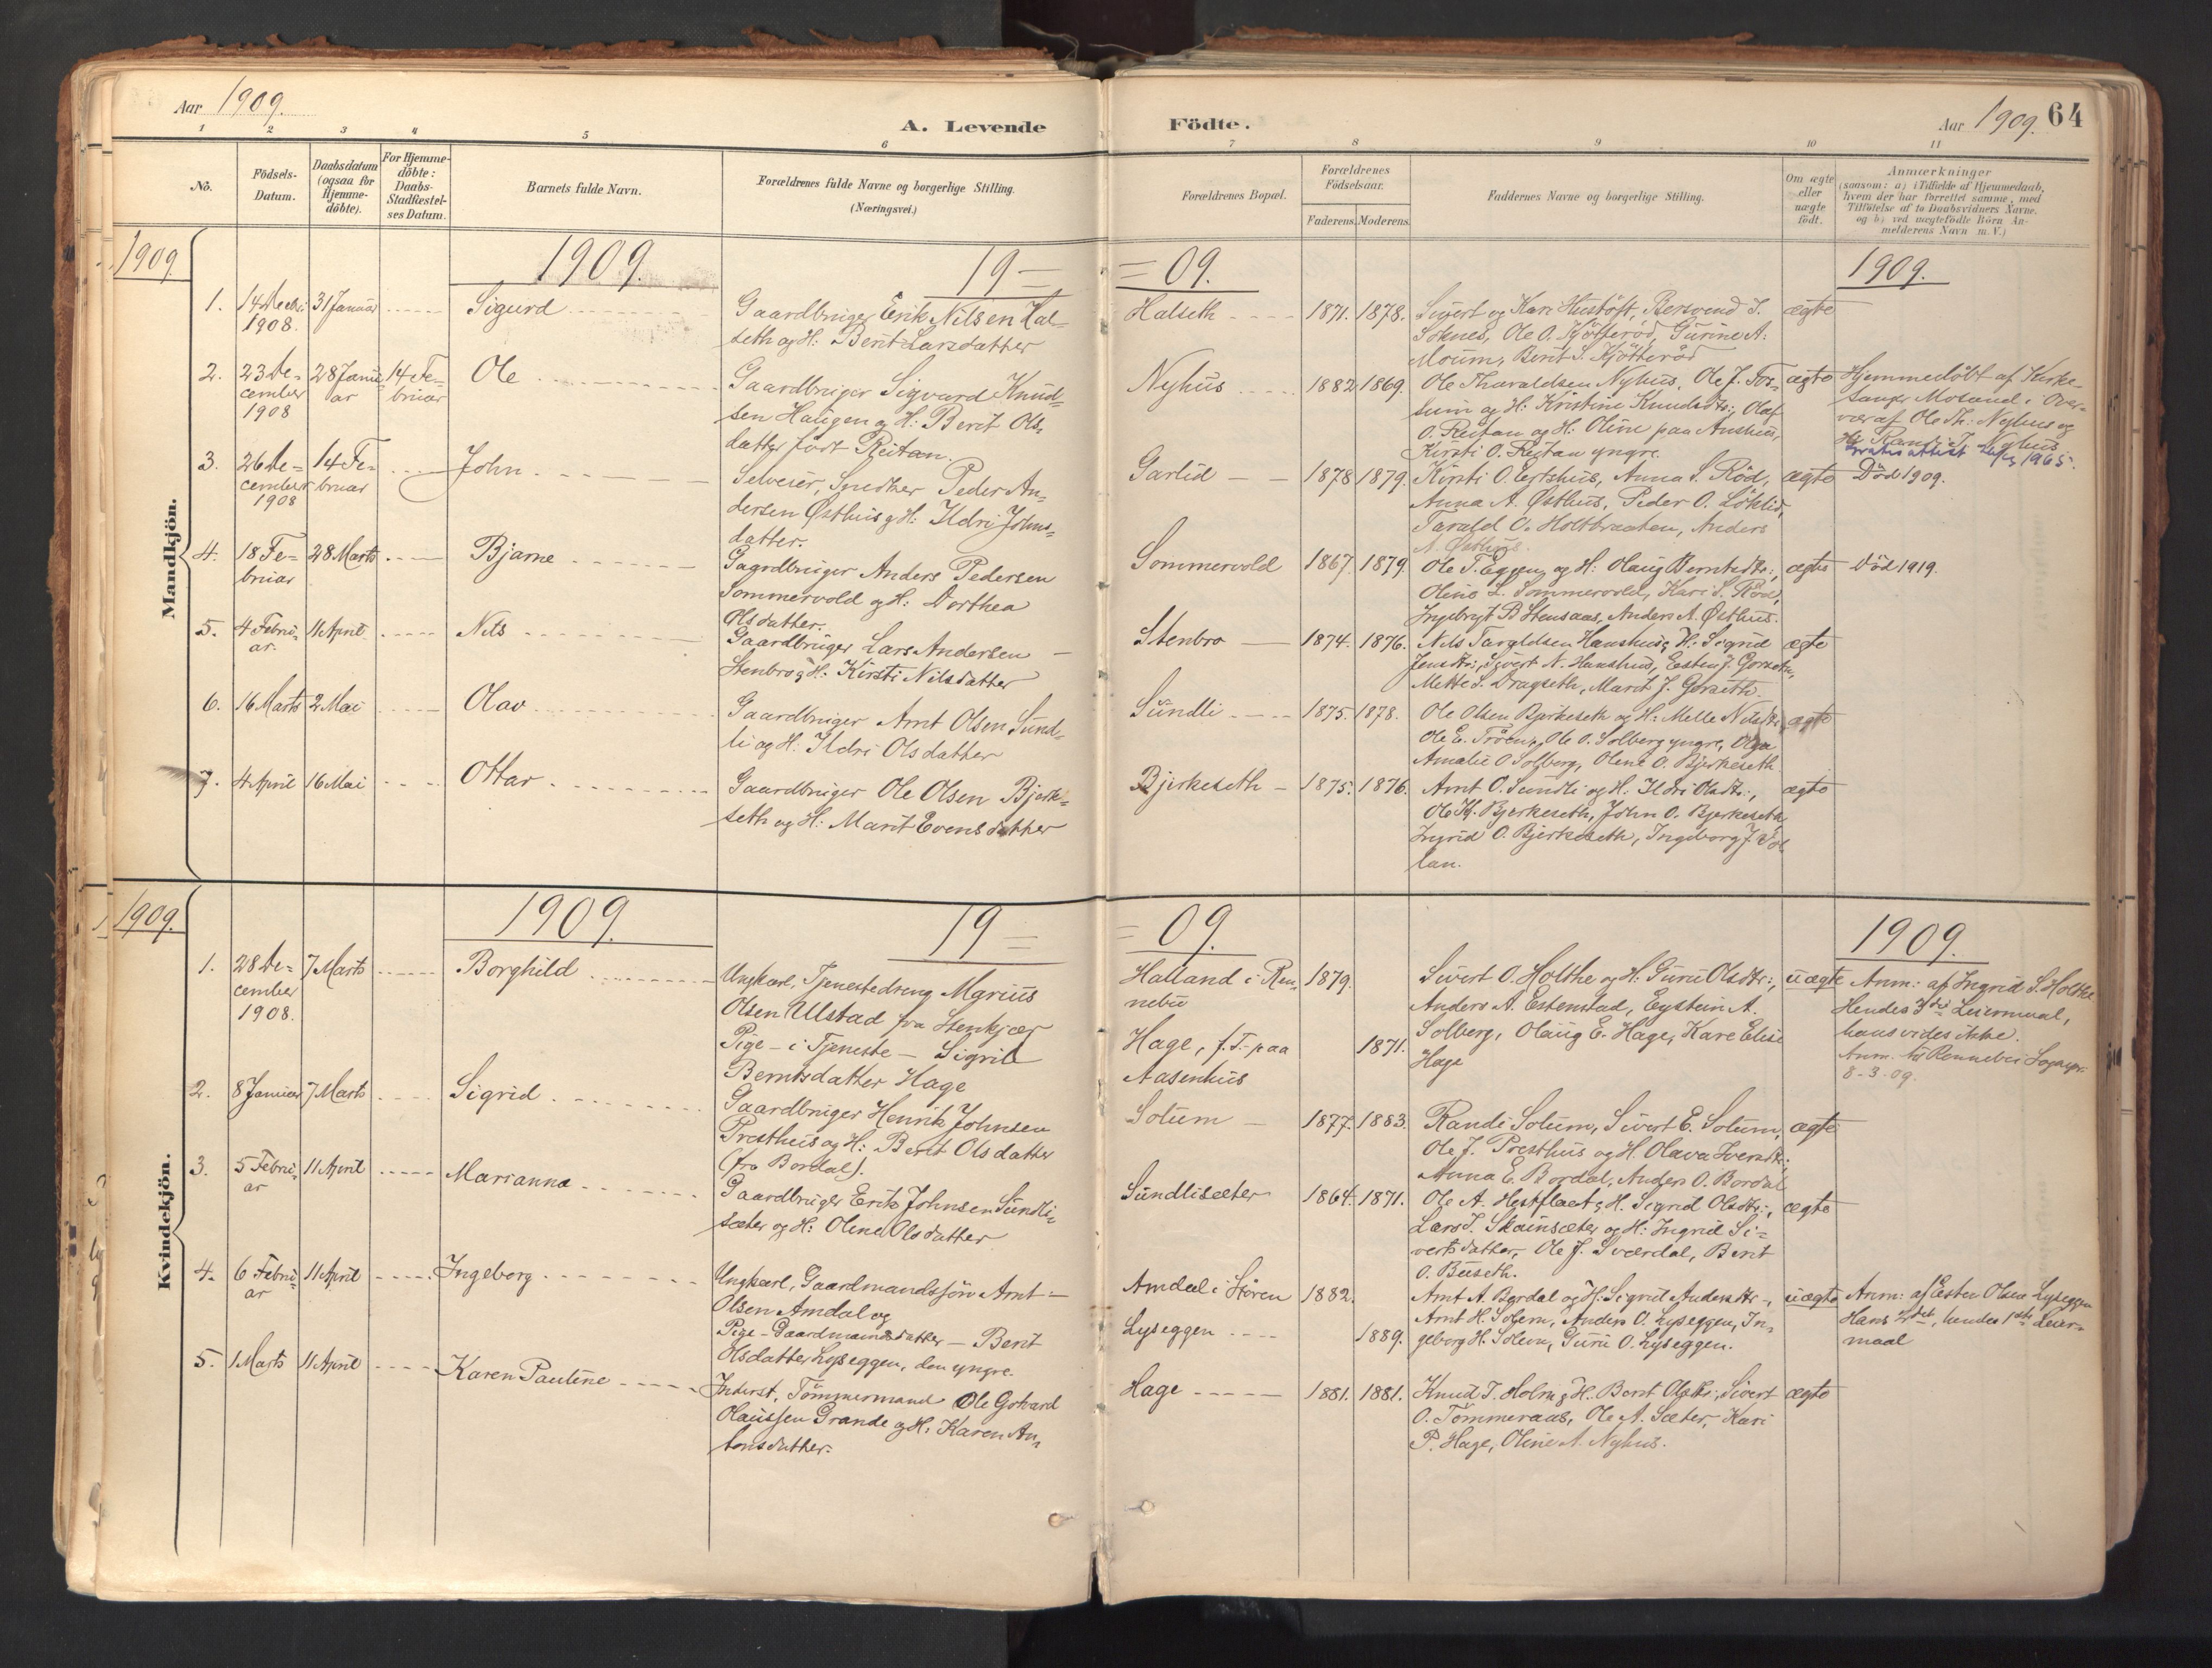 Aar 1909.
A. Levende Födte.
Aar 1909. 64
1 2 3 4 5 6 7 8 9 10 11
No.
Födsels-
Datum.
Daabsdatum
(ogsaa for
Hjemme-
döbte).
For Hjemme-
döbte:
Daabs-
Stadfæstel-
ses Datum.
Barnets fulde Navn.
Forældrenes fulde Navne og borgerlige Stilling.
(Næringsvei.)
Forældrenes Bopæl.
Forældrenes
Födselsaar.
Faderens. Moderens.
Faddernes Navne og borgerlige Stilling.
Om ægte
eller
uægte
födt.
Anmærkninger
(saasom: a) i Tilfælde af Hjemmedaab,
hvem der har forrettet samme, med
Tilföielse af to Daabsvidners Navne.
og b) ved uægtefödte Börn An-
melderens Navn m. V.)
Mandkjön.
1909. 1909. 19= =09. 1909.
1. 14 Decbr.
1908.
31 Januar
Sigurd
Gaardbruger Erik Nilsen Hal-
seth og H: Berit Larsdatter
Halseth
1871. 1878.
Sivert og Kari Hustöft, Bersvend I.
Soknes, Ole O. Kjötteröd, Gurine A.
Moum, Berit S. Kjötteröd
ægte
2. 23 De-
cember
1908
28 Janu-
ar
14 Fe-
bruar
Ole
Gaardbruger Sigvard Knud-
sen Haugen og H: Berit Ols-
datter född Reitan.
Nyhus
1882 1869.
Ole Tharaldsen Nyhus, Ole J. Fos-
sum og H: Kristine Knudsdtr:, Olaf
O. Reitan og H: Oline paa Aushus,
Kirsti O. Reitan yngre.
ægte
Hjemmedöbt af Kirke-
sanger Mosand i Over-
vær af Ole Th: Nyhus og
H: Randi I. Nyhus
1965.
3. 26 De-
cember
1908
14 Fe-
bruar
John
Selveier, Snedker Peder An-
dersen Østhus og H: Ildri Johns-
datter.
Garlid
1878 1879.
Kirsti O. Eidshus, Anna S. Röd,
Anna A. Østhus, Peder O. Löklid,
Tarald O. Holtbraaten, Anders
A. Østhus.
ægte
Död 1909.
4. 18 Fe-
bruar
28 Marts
Bjarne
Gaardbruger Anders Pedersen
Sommervold og H: Dorthea
Olsdatter.
Sommervold
1867. 1879
Ole T. Eggen og H: Olaug Berntsdtr:,
Oline L. Sommervold, Kari S. Röd,
Ingebrigt B. Stensaas, Anders A. Østhus.
ægte
Död 1919.
5. 4 Febru-
ar.
11 April
Nils
Gaardbruger Lars Andersen
Stenbro og H: Kirsti Nilsdatter
Stenbro
1874. 1876.
Nils Taraldsen Haushus og H: Sigrid
Jensdtr:, Sivert N. Haushus, Esten J. Gorseth,
Mette S. Dragseth, Marit J. Gorseth.
ægte
6. 16 Marts 2 Mai
Olav
Gaardbruger Arnt Olsen Sund-
li og H: Ildri Olsdatter
Sundli
1875. 1878.
Ole Olsen Bjerkeseth og H: Melle Nilsdtr:,
Ole E. Tröen, Ole O. Solberg yngre, Olga
Amalie O. Solberg, Olene O. Bjerkeseth
ægte
7. 4 April 16 Mai
Ottar
Gaardbruger Ole Olsen Bjerk-
seth og H: Marit Evensdatter
Bjerkeseth
1875. 1876.
Arnt O. Sundli og H: Ildri Olsdtr:,
Ole H. Bjerkeseth, John O. Bjerkeseth,
Ingrid O. Bjerkeseth, Ingeborg J. Vol-
lan.
ægte
Kvindekjön.
1909. 1909. 19= =09. 1909.
1. 28 De-
cember
1908.
7 Marts
Borghild
Ungkarl, Tjenestedreng Marius
Olsen Ulstad fra Stenkjær
Pige – i Tjeneste – Sigrid
Berntsdatter Hage
Halland i Ren-
nebu
Hage, f. T. paa
Aasenhus
1879.
1871.
Sivert O. Holthe og H: Guru Olsdtr:,
Anders A. Estenstad, Eystein A.
Solberg, Olaug E. Hage, Kare Elise
Hage
uægte
Anm: af Ingrid S. Holthe
Hendes 3die Leiermaal,
hans vides ikke.
Anm. til Rennebu Sognepr.
8-3-09.
2. 8 Januar 7 Marts
Sigrid
Gaardbruger Henrik Johnsen
Presthus og H: Berit Olsdatter
(fra Bordal).
Solum
1877. 1883.
Randi Solum, Sivert E. Solum,
Ole J. Presthus og H: Olava Iversdtr:,
Anna E. Bordal, Anders O. Bordal
ægte
3. 5 Febru-
ar
11 April
Marianna
Gaardbruger Erik Johnsen Sundli-
sæter og H: Olene Olsdatter
Sundlisæter
1864. 1871.
Ole A. Hestflaat og H: Sigrid Olsdtr:,
Lars T. Skainsæter og H: Ingrid Si-
vertsdatter, Ole J. Sværdal, Berit
O. Buseth.
ægte
4. 6 Febru-
ar
11 April
Ingeborg
Ungkarl, Gaardmandssön Arnt
Olsen Amdal og
Pige – Gaardmandsdatter – Berit
Olsdatter Lyseggen, den yngre.
Amdal i Stören
Lyseggen
1882.
1889.
Arnt A. Bordal og H: Sigrid Andersdtr:,
Arnt H. Solem, Anders O. Lyseggen, In-
geborg H. Solem, Guru O. Lyseggen.
uægte
Anm: af Esten Olsen Lyseggen
Hans 2det, hendes 1ste Leier-
maal
5. 1 Marts 11 April
Karen Pauline
Inderst, Tömmermand Ole Gotvard
Olaussen Grande og H: Karen An-
tonsdatter.
Hage
1881. 1881.
Knud J. Holm og H: Berit Olsdtr:, Sivert
O. Tömmeraas, Ole A. Sæter, Kari
P. Hage, Oline A. Nyhus.
ægte